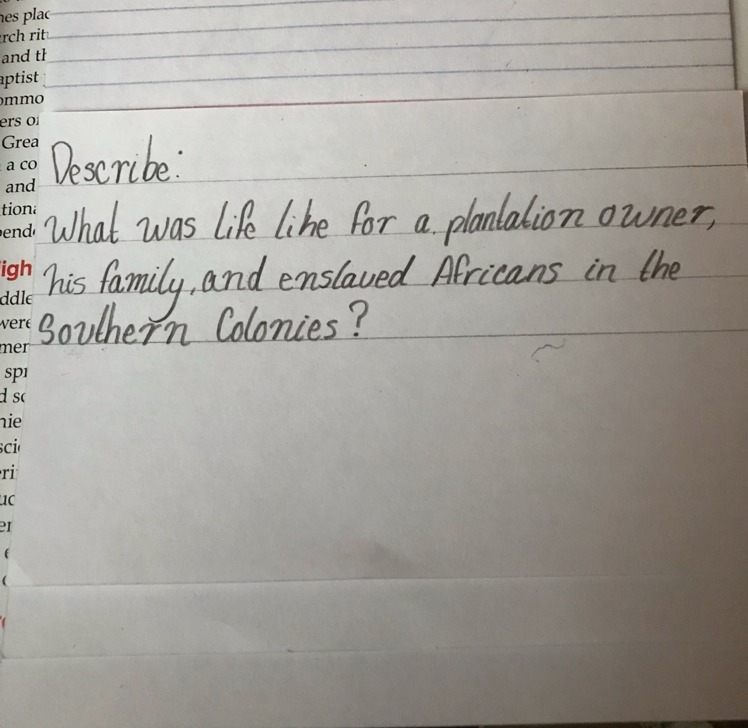 nes plac
rch rit
and th
aptist
ommo
ers o
Grea
a co
and
tion
end
igh
ddle
were
mer
spi
d so
nie
sci
eri
uc
er
e
Describe:
What was life like for a plantation owner,
his family, and enslaved Africans in the
Southern Colonies?